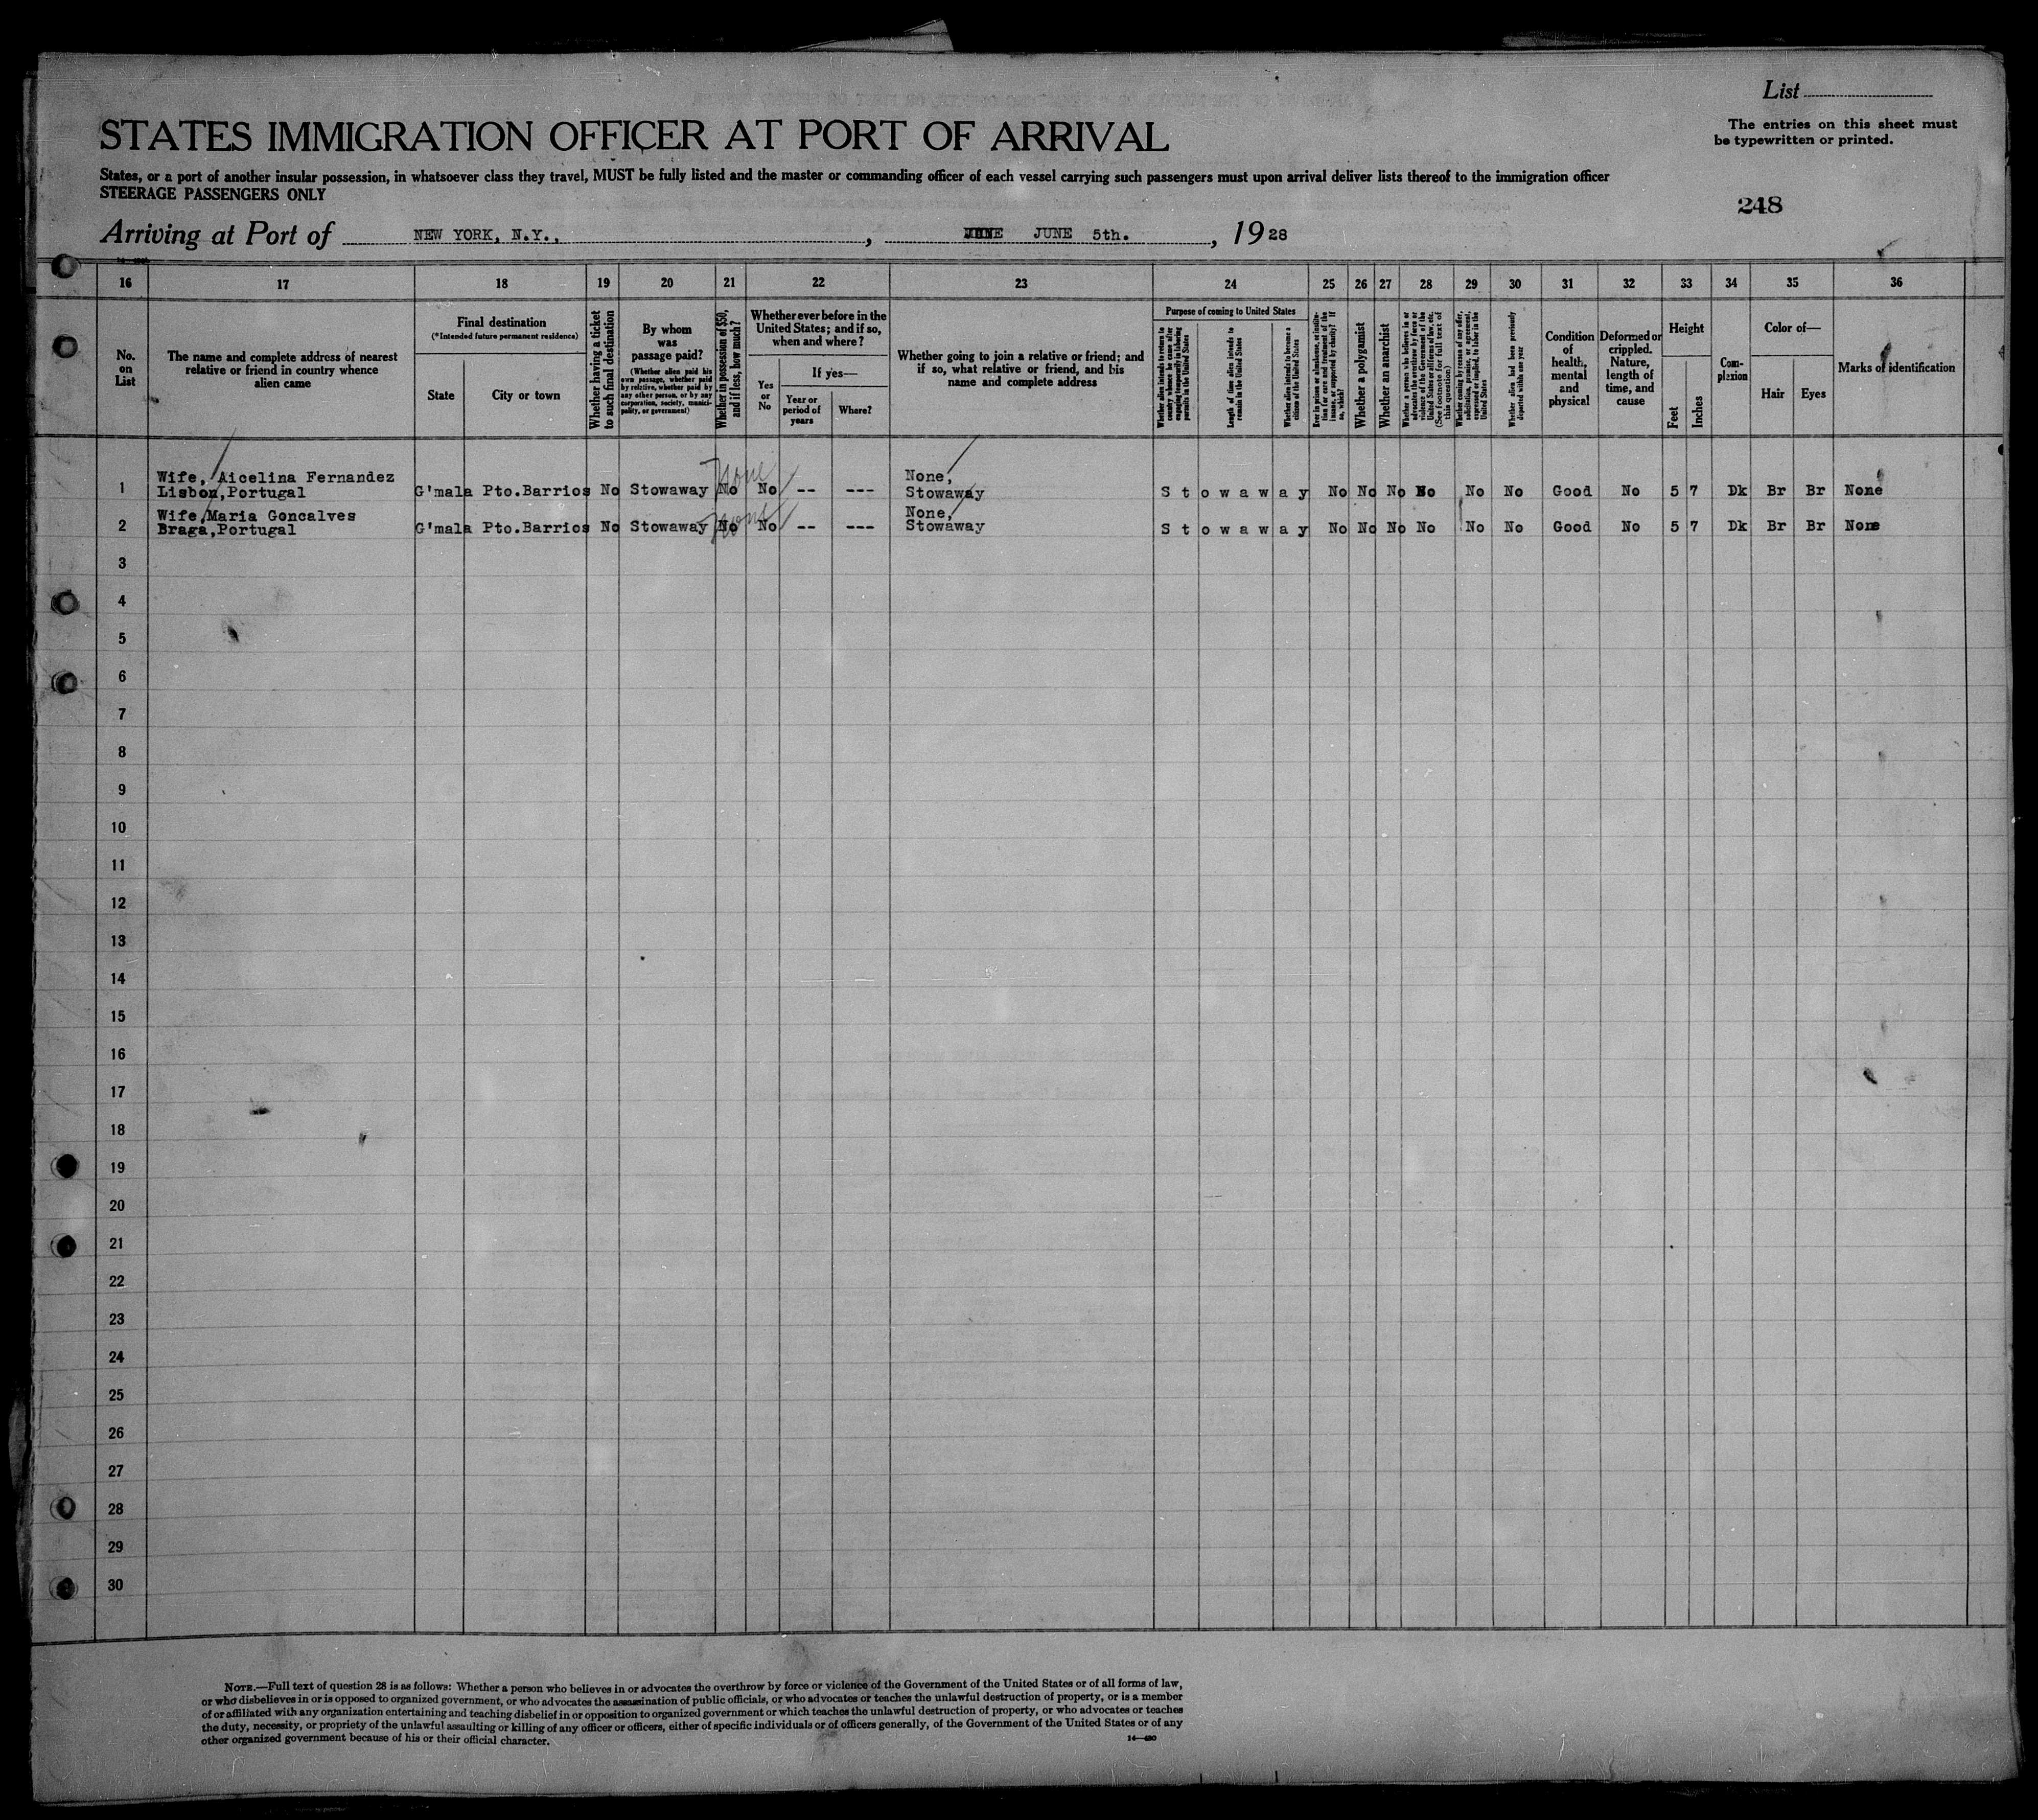 List
The entries on this sheet must
be typewritten or printed.
STATES IMMIGRATION OFFICER AT PORT OF ARRIVAL
States, or a port of another insular possession, in whatsoever class they travel, MUST be fully listed and the master or commanding officer of each vessel carrying such passengers must upon arrival deliver lists thereof to the immigration officer
STEERAGE PASSENGERS ONLY
248
Arriving at Port of NEW YORK, N.Y., , JUNE 5th. , 1928
16 17 18 19 20 21 22 23 24 25 26 27 28 29 30 31 32 33 34 35 36
No.
on
List
The name and complete address of nearest
relative or friend in country whence
alien came
Final destination
(*Intended future permanent residence)
State
City or town
Whether having a ticket
to such final destination
By whom
was
passage paid?
(Whether alien paid his
own passage, whether paid
by relative, whether paid by
any other person, or by any
corporation, society, munici-
pality, or government)
Whether in possession of $50,
and if less, how much?
Whether ever before in the
United States; and if so,
when and where?
Yes
or
No
If yes—
Year or
period of
years
Where?
Whether going to join a relative or friend; and
if so, what relative or friend, and his
name and complete address
Purpose of coming to United States
Whether alien intends to return to
country whence he came after
engaging temporarily in laboring
pursuits in the United States
Length of time alien intends to
remain in the United States
Whether alien intends to become a
citizen of the United States
Ever in prison or almshouse, or institu-
tion for care and treatment of the
insane, or supported by charity? If
so, which?
Whether a polygamist
Whether an anarchist
Whether a person who believes in or
advocates the overthrow by force or
violence of the Government of the
United States or all forms of law, etc.
(See footnote for full text of
this question)
Whether coming by reason of any offer,
solicitation, promise, or agreement,
expressed or implied, to labor in the
United States
Whether alien had been previously
deported within one year
Condition
of
health,
mental
and
physical
Deformed or
crippled.
Nature,
length of
time, and
cause
Height
Feet
Inches
Com-
plexion
Color of—
Hair
Eyes
Marks of identification
None
Wife, Aicelina Fernandez None,
1 Lisbon,Portugal G'mala Pto.Barrios No Stowaway No No -- --- Stowaway Stowaway No No No No No No Good No 5 7 Dk Br Br None
None
Wife,Maria Goncalves None,
2 Braga,Portugal G'mala Pto.Barrios No Stowaway No No -- --- Stowaway Stowaway No No No No No No Good No 5 7 Dk Br Br None
3
4
5
6
7
8
9
10
11
12
13
14
15
16
17
18
19
20
21
22
23
24
25
26
27
28
29
30
NOTE.—Full text of question 28 is as follows: Whether a person who believes in or advocates the overthrow by force or violence of the Government of the United States or of all forms of law,
or who disbelieves in or is opposed to organized government, or who advocates the assassination of public officials, or who advocates or teaches the unlawful destruction of property, or is a member
of or affiliated with any organization entertaining and teaching disbelief in or opposition to organized government or which teaches the unlawful destruction of property, or who advocates or teaches
the duty, necessity, or propriety of the unlawful assaulting or killing of any officer or officers, either of specific individuals or of officers generally, of the Government of the United States or of any
other organized government because of his or their official character.
14—480